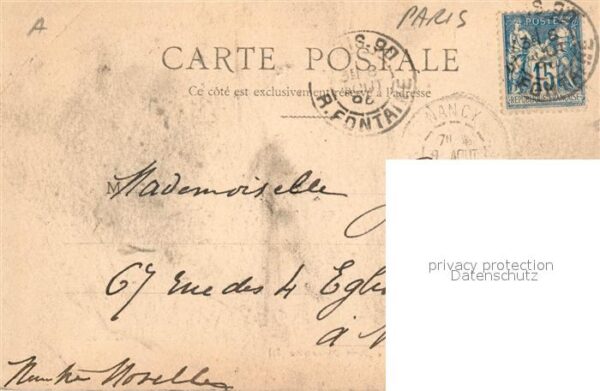 A
PARIS
CARTE POSTALE
Ce côté est exclusivement réservé à l'adresse
POSTES
15
RÉPUBLIQUE FRANÇAISE
S. 90
8
AOUT
R. FONTAINE
NANCY
9 AOUT
M
Mademoiselle
67 rue des 4 Egli
à N
Meurthe Moselle
privacy protection
Datenschutz